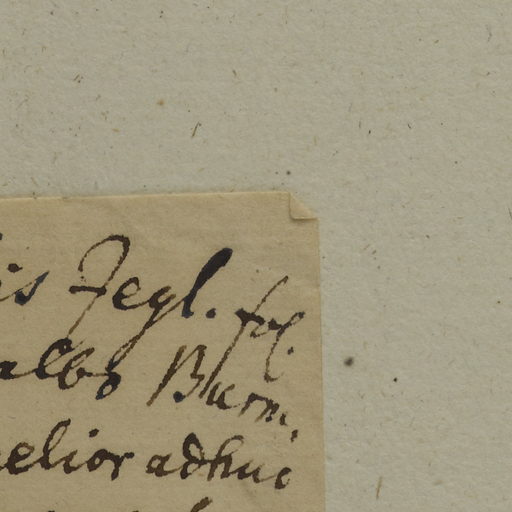 is Zegl. fol.
albo Burm.
melior adhuc